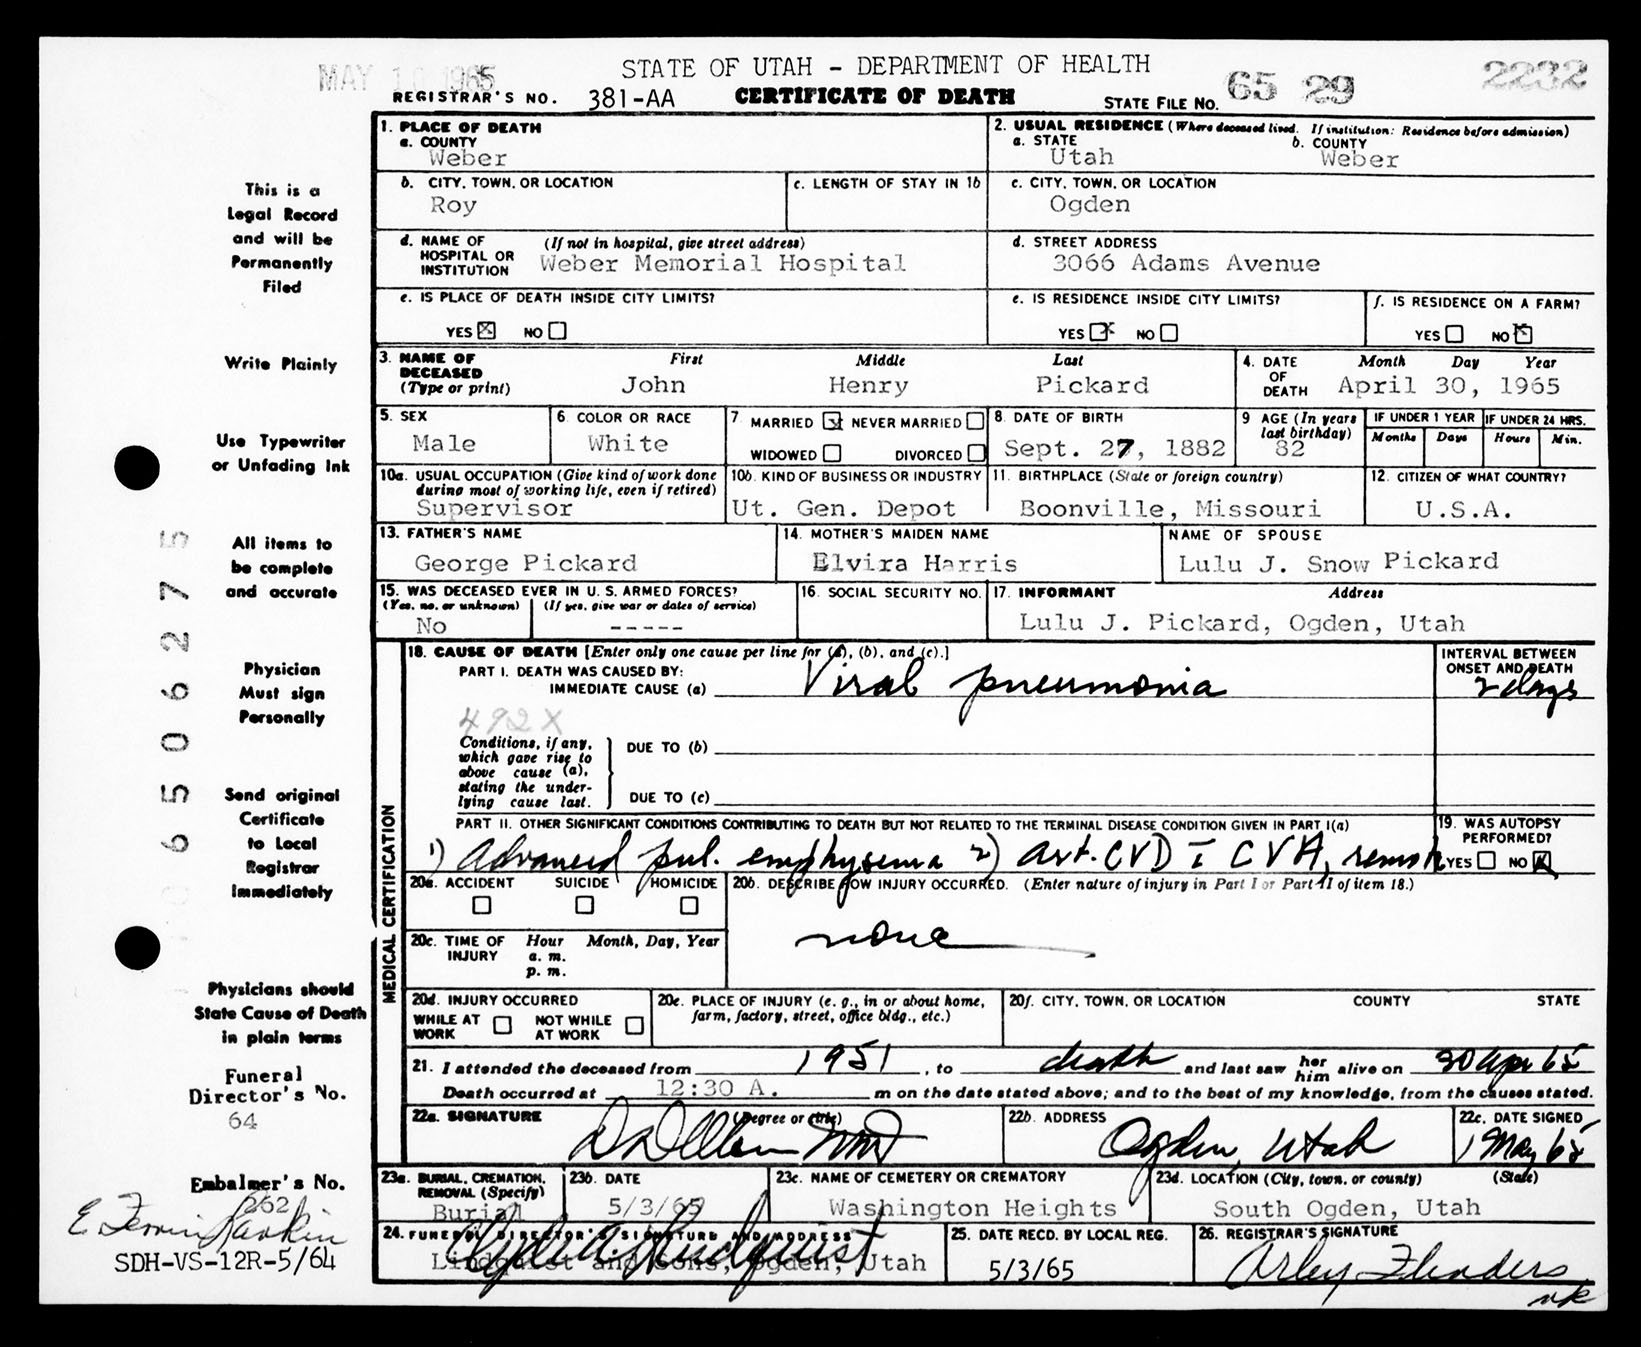 MAY 10 1965
STATE OF UTAH - DEPARTMENT OF HEALTH
65 29 2232
REGISTRAR'S NO. 381-AA CERTIFICATE OF DEATH STATE FILE NO.
This is a
Legal Record
and will be
Permanently
Filed
Write Plainly
Use Typewriter
or Unfading Ink
All items to
be complete
and accurate
Physician
Must sign
Personally
Send original
Certificate
to Local
Registrar
Immediately
Physicians should
State Cause of Death
in plain terms
Funeral
Director's No.
64
Embalmer's No.
262
E
SDH-VS-12R-5/64
65 0 6 2 7 5
1. PLACE OF DEATH
a. COUNTY
Weber
2. USUAL RESIDENCE (Where deceased lived. If institution: Residence before admission)
a. STATE b. COUNTY
Utah Weber
b. CITY, TOWN, OR LOCATION
Roy
c. LENGTH OF STAY IN 1b
c. CITY, TOWN, OR LOCATION
Ogden
d. NAME OF HOSPITAL OR INSTITUTION (If not in hospital, give street address)
Weber Memorial Hospital
d. STREET ADDRESS
3066 Adams Avenue
e. IS PLACE OF DEATH INSIDE CITY LIMITS?
YES X NO
e. IS RESIDENCE INSIDE CITY LIMITS?
YES X NO
f. IS RESIDENCE ON A FARM?
YES NO X
3. NAME OF DECEASED (Type or print) First Middle Last
John Henry Pickard
4. DATE OF DEATH Month Day Year
April 30, 1965
5. SEX
Male
6. COLOR OR RACE
White
7 MARRIED X NEVER MARRIED
WIDOWED DIVORCED
8. DATE OF BIRTH
Sept. 27, 1882
9 AGE (In years last birthday)
82
IF UNDER 1 YEAR IF UNDER 24 HRS.
Months Days Hours Min.
10a. USUAL OCCUPATION (Give kind of work done during most of working life, even if retired)
Supervisor
10b. KIND OF BUSINESS OR INDUSTRY
Ut. Gen. Depot
11. BIRTHPLACE (State or foreign country)
Boonville, Missouri
12. CITIZEN OF WHAT COUNTRY?
U.S.A.
13. FATHER'S NAME
George Pickard
14. MOTHER'S MAIDEN NAME
Elvira Harris
NAME OF SPOUSE
Lulu J. Snow Pickard
15. WAS DECEASED EVER IN U. S. ARMED FORCES?
(Yes, no, or unknown) (If yes, give war or dates of service)
No -----
16. SOCIAL SECURITY NO.
17. INFORMANT Address
Lulu J. Pickard, Ogden, Utah
MEDICAL CERTIFICATION
18. CAUSE OF DEATH [Enter only one cause per line for (a), (b), and (c).]
INTERVAL BETWEEN ONSET AND DEATH
PART I. DEATH WAS CAUSED BY:
IMMEDIATE CAUSE (a) Viral pneumonia 2 days
492X
Conditions, if any, which gave rise to above cause (a), stating the underlying cause last.
DUE TO (b)
DUE TO (c)
PART II. OTHER SIGNIFICANT CONDITIONS CONTRIBUTING TO DEATH BUT NOT RELATED TO THE TERMINAL DISEASE CONDITION GIVEN IN PART I(a)
1) Advanced pul. emphysema 2) Art. CVD c CVA, remote
19. WAS AUTOPSY PERFORMED?
YES NO X
20a. ACCIDENT SUICIDE HOMICIDE
20b. DESCRIBE HOW INJURY OCCURRED. (Enter nature of injury in Part I or Part II of item 18.)
none
20c. TIME OF INJURY Hour Month, Day, Year
a. m.
p. m.
20d. INJURY OCCURRED
WHILE AT WORK NOT WHILE AT WORK
20e. PLACE OF INJURY (e. g., in or about home, farm, factory, street, office bldg., etc.)
20f. CITY, TOWN, OR LOCATION COUNTY STATE
21. I attended the deceased from 1951, to death and last saw her him alive on 30 Apr 65
Death occurred at 12:30 A. m on the date stated above; and to the best of my knowledge, from the causes stated.
22a. SIGNATURE (Degree or title)
22b. ADDRESS
Ogden, Utah
22c. DATE SIGNED
1 May 65
23a. BURIAL, CREMATION, REMOVAL (Specify)
Burial
23b. DATE
5/3/65
23c. NAME OF CEMETERY OR CREMATORY
Washington Heights
23d. LOCATION (City, town, or county) (State)
South Ogden, Utah
24. FUNERAL DIRECTOR'S SIGNATURE AND ADDRESS
Lindquist and Sons, Ogden, Utah
25. DATE RECD. BY LOCAL REG.
5/3/65
26. REGISTRAR'S SIGNATURE
Arley Flinders